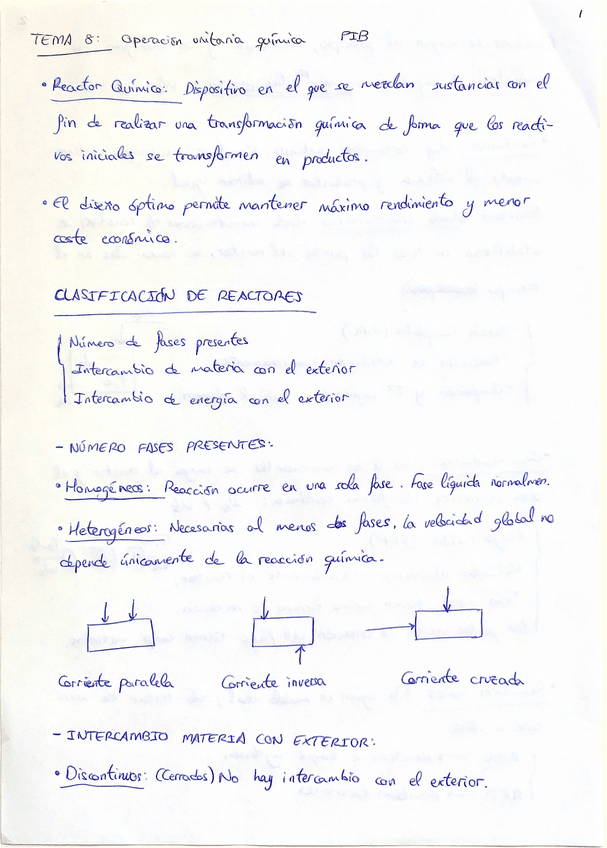 1
TEMA 8: Operación unitaria química PIB
• Reactor Químico: Dispositivo en el que se mezclan sustancias con el
fin de realizar una transformación química de forma que los reacti-
vos iniciales se transformen en productos.
• El diseño óptimo permite mantener máximo rendimiento y menor
coste económico.
CLASIFICACIÓN DE REACTORES
Número de fases presentes
Intercambio de materia con el exterior
Intercambio de energía con el exterior
- NÚMERO FASES PRESENTES:
• Homogéneos: Reacción ocurre en una sola fase. Fase líquida normalmen.
• Heterogéneos: Necesarias al menos dos fases, la velocidad global no
depende únicamente de la reacción química.
Corriente paralela Corriente inversa Corriente cruzada
- INTERCAMBIO MATERIA CON EXTERIOR:
• Discontinuos: (Cerrados) No hay intercambio con el exterior.